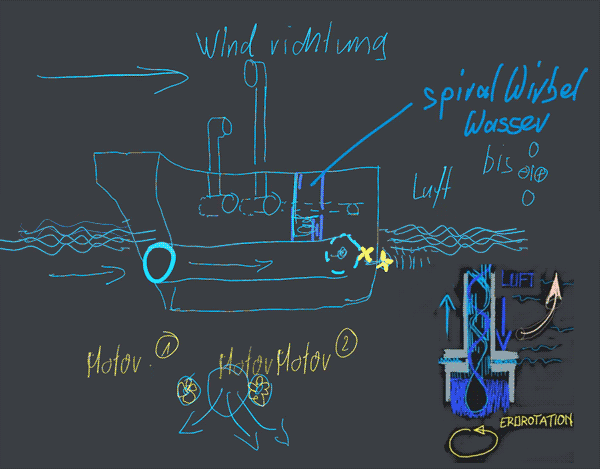 Windrichtung
spiralWirbel
Wasser
bis 0
Luft
0
LUFT
Motor. ①
MotorMotor ②
ERDROTATION